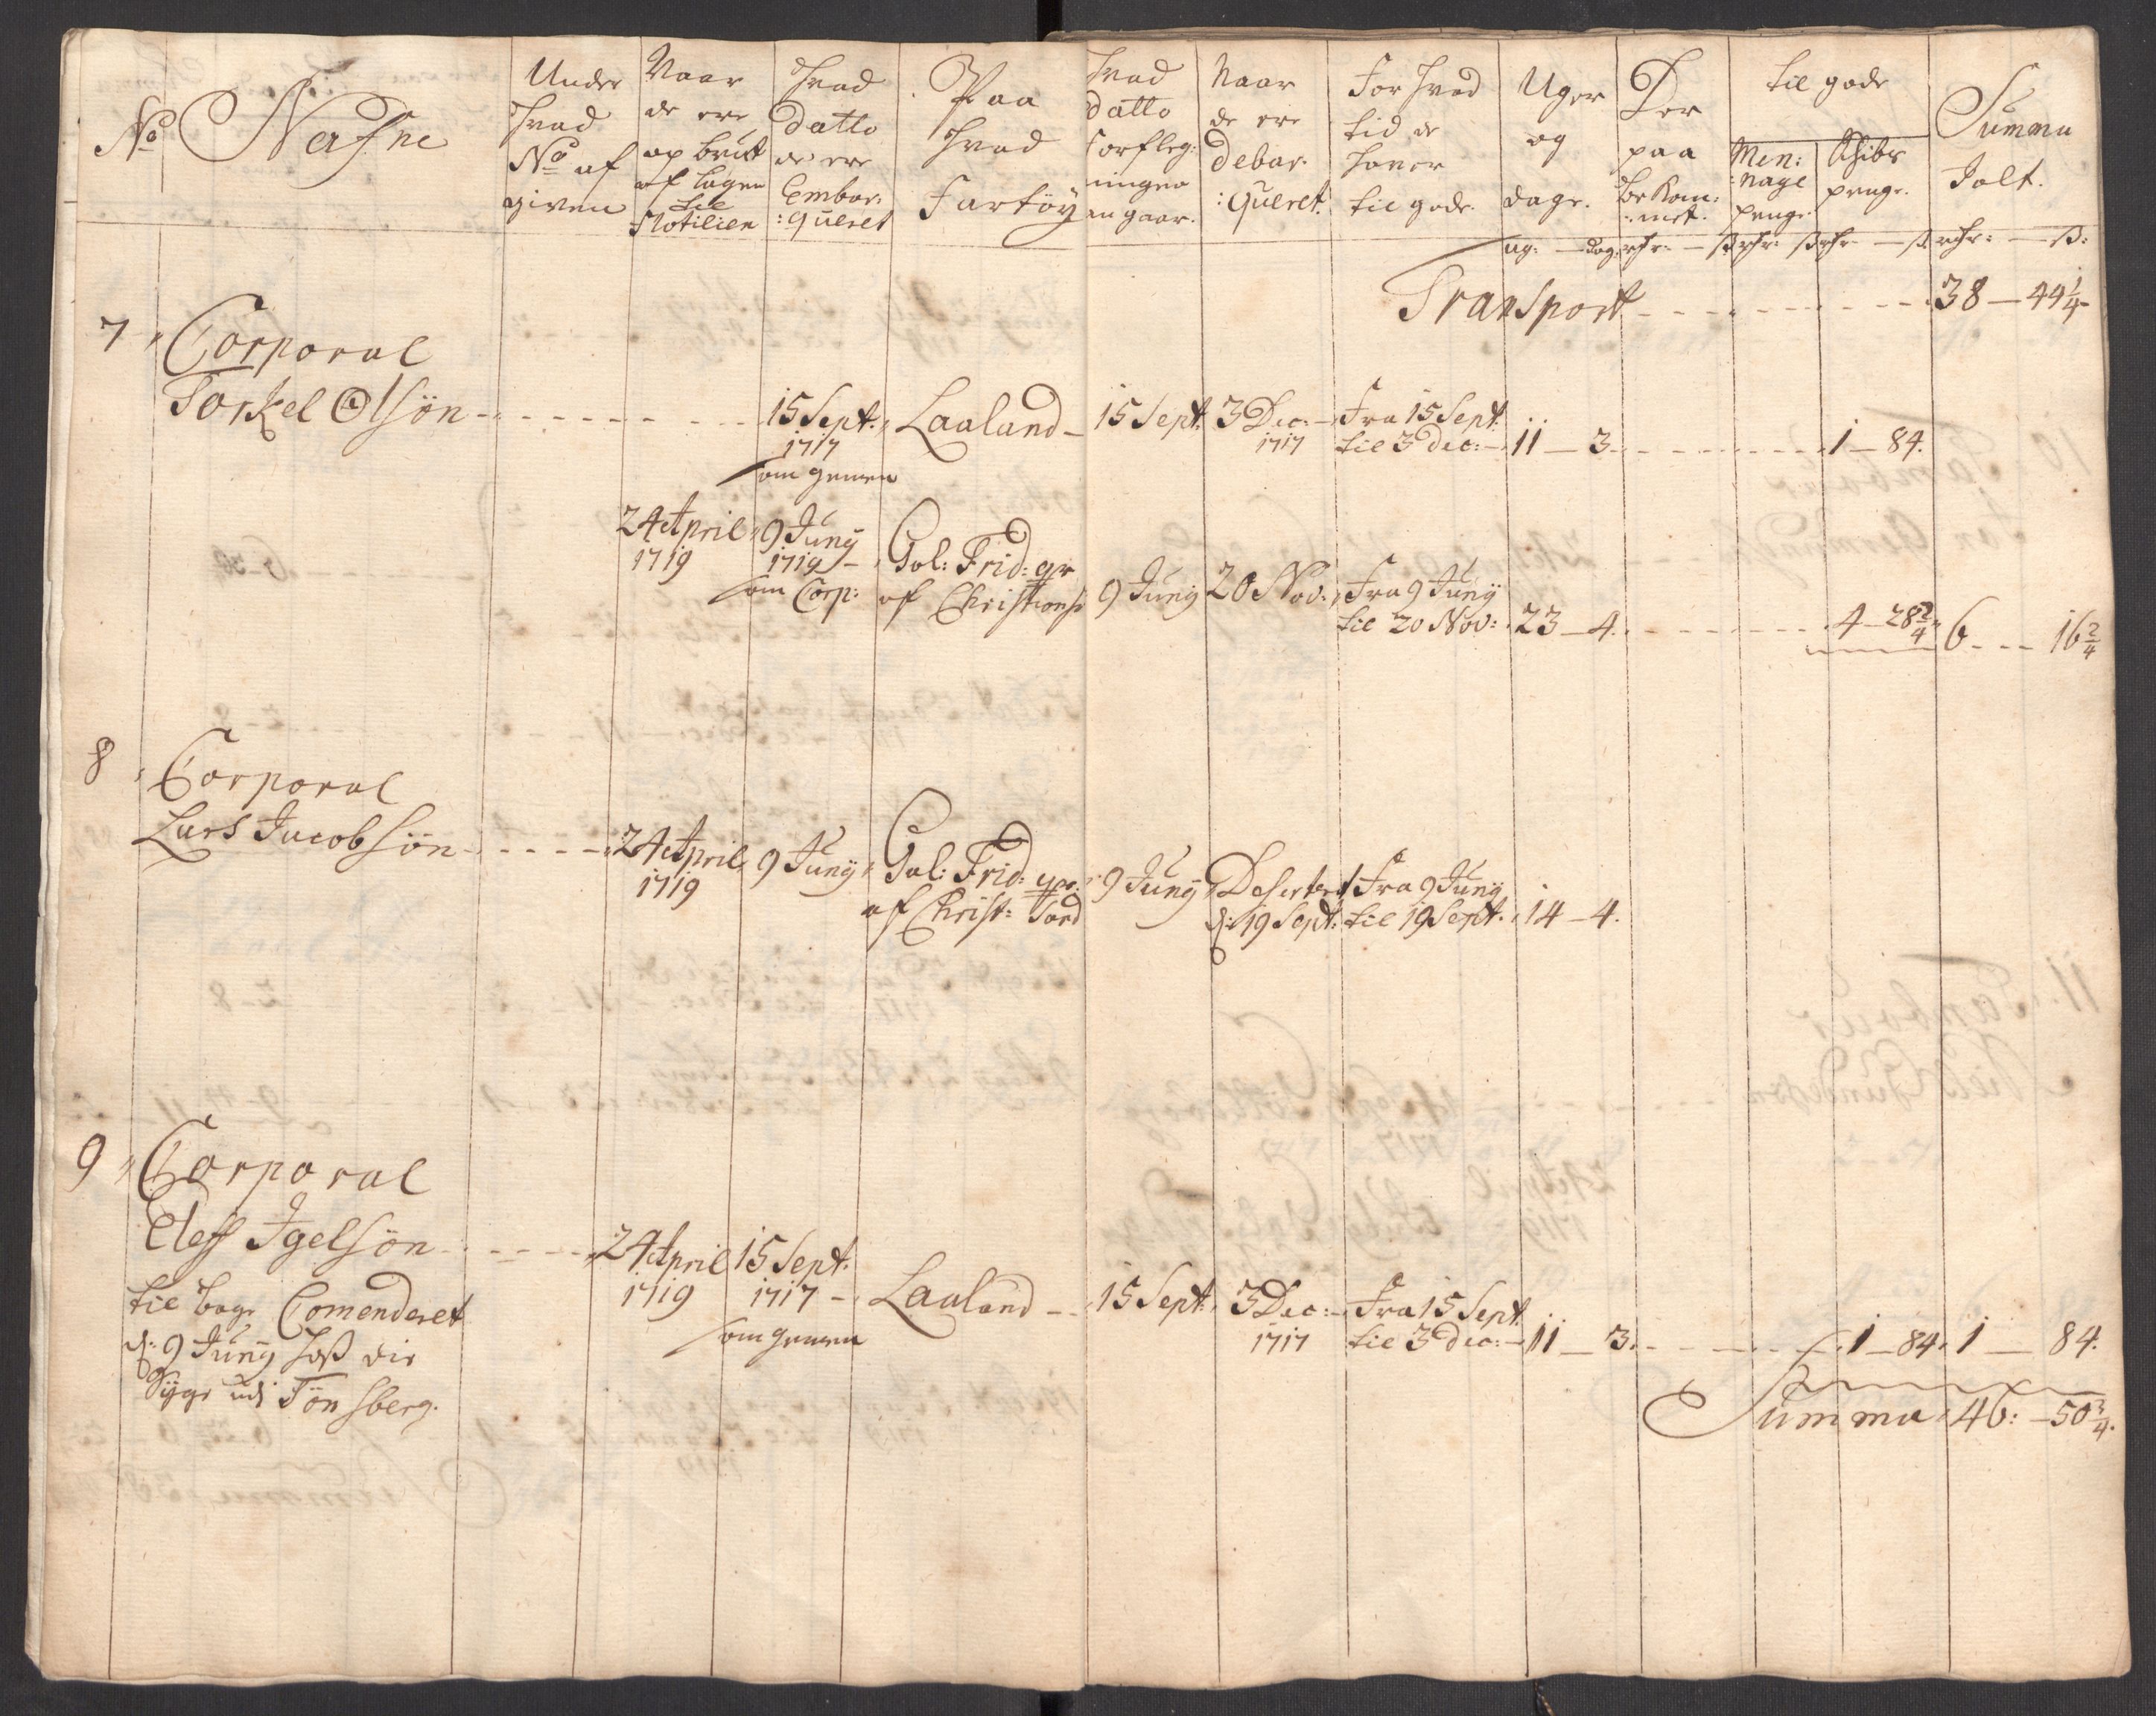 No
Nafne
Under
hvad
No af
given
Naar
de ere
op brüt
af lagen
til
Flotilien
Hvad
datto
de ere
Embar:
:queret
Paa
hvad
Fartöy
Hvad
datto
Forfleg:
ningen
an gaar.
Naar
de ere
debar:
:queret.
For hvad
tid de
haver
til gode
Uger
og
dage.
Der
paa
be kom:
:met.
til gode
Men:
:nage
penge.
Schibs
penge.
Summa
Jalt.
ug: dag: rdr: ß rdr: ß rdr ß. rdr: ß:
Transport 38 — 44 1/4
7 Corporal
Torkel Olsön
15 Sept. 1717
som gemen
Laaland
15 Sept.
3 Dec: 1717
Fra 15 Sept.
til 3 dec:
11 — 3
1 — 84.
24 April 1719
9 Juny 1719
som Corp:
Gal: Frid: gr
af Christians
9 Juny
20 Nov:
Fra 9 Juny
til 20 Nov:
23 — 4
4 — 28 2/4
6 — 16 2/4
8 Corporal
Lars Jacobsön
24 April 1719
9 Juny
Gal: Frid:
af Christ:
9 Juny
Deserterd
d: 19 Sept:
Fra 9 Juny
til 19 Sept.
14 — 4.
9 Corporal
Elef Igelsön
til bage Comenderet
d: 9 Juny hoß die
Syge udi Tönsberg.
24 April 1719
15 Sept. 1717
som gemen
Laaland
15 Sept:
3 Dec: 1717
Fra 15 Sept.
til 3 dec:
11 — 3.
1 — 84.
1 — 84.
Summa 46: — 50 3/4.